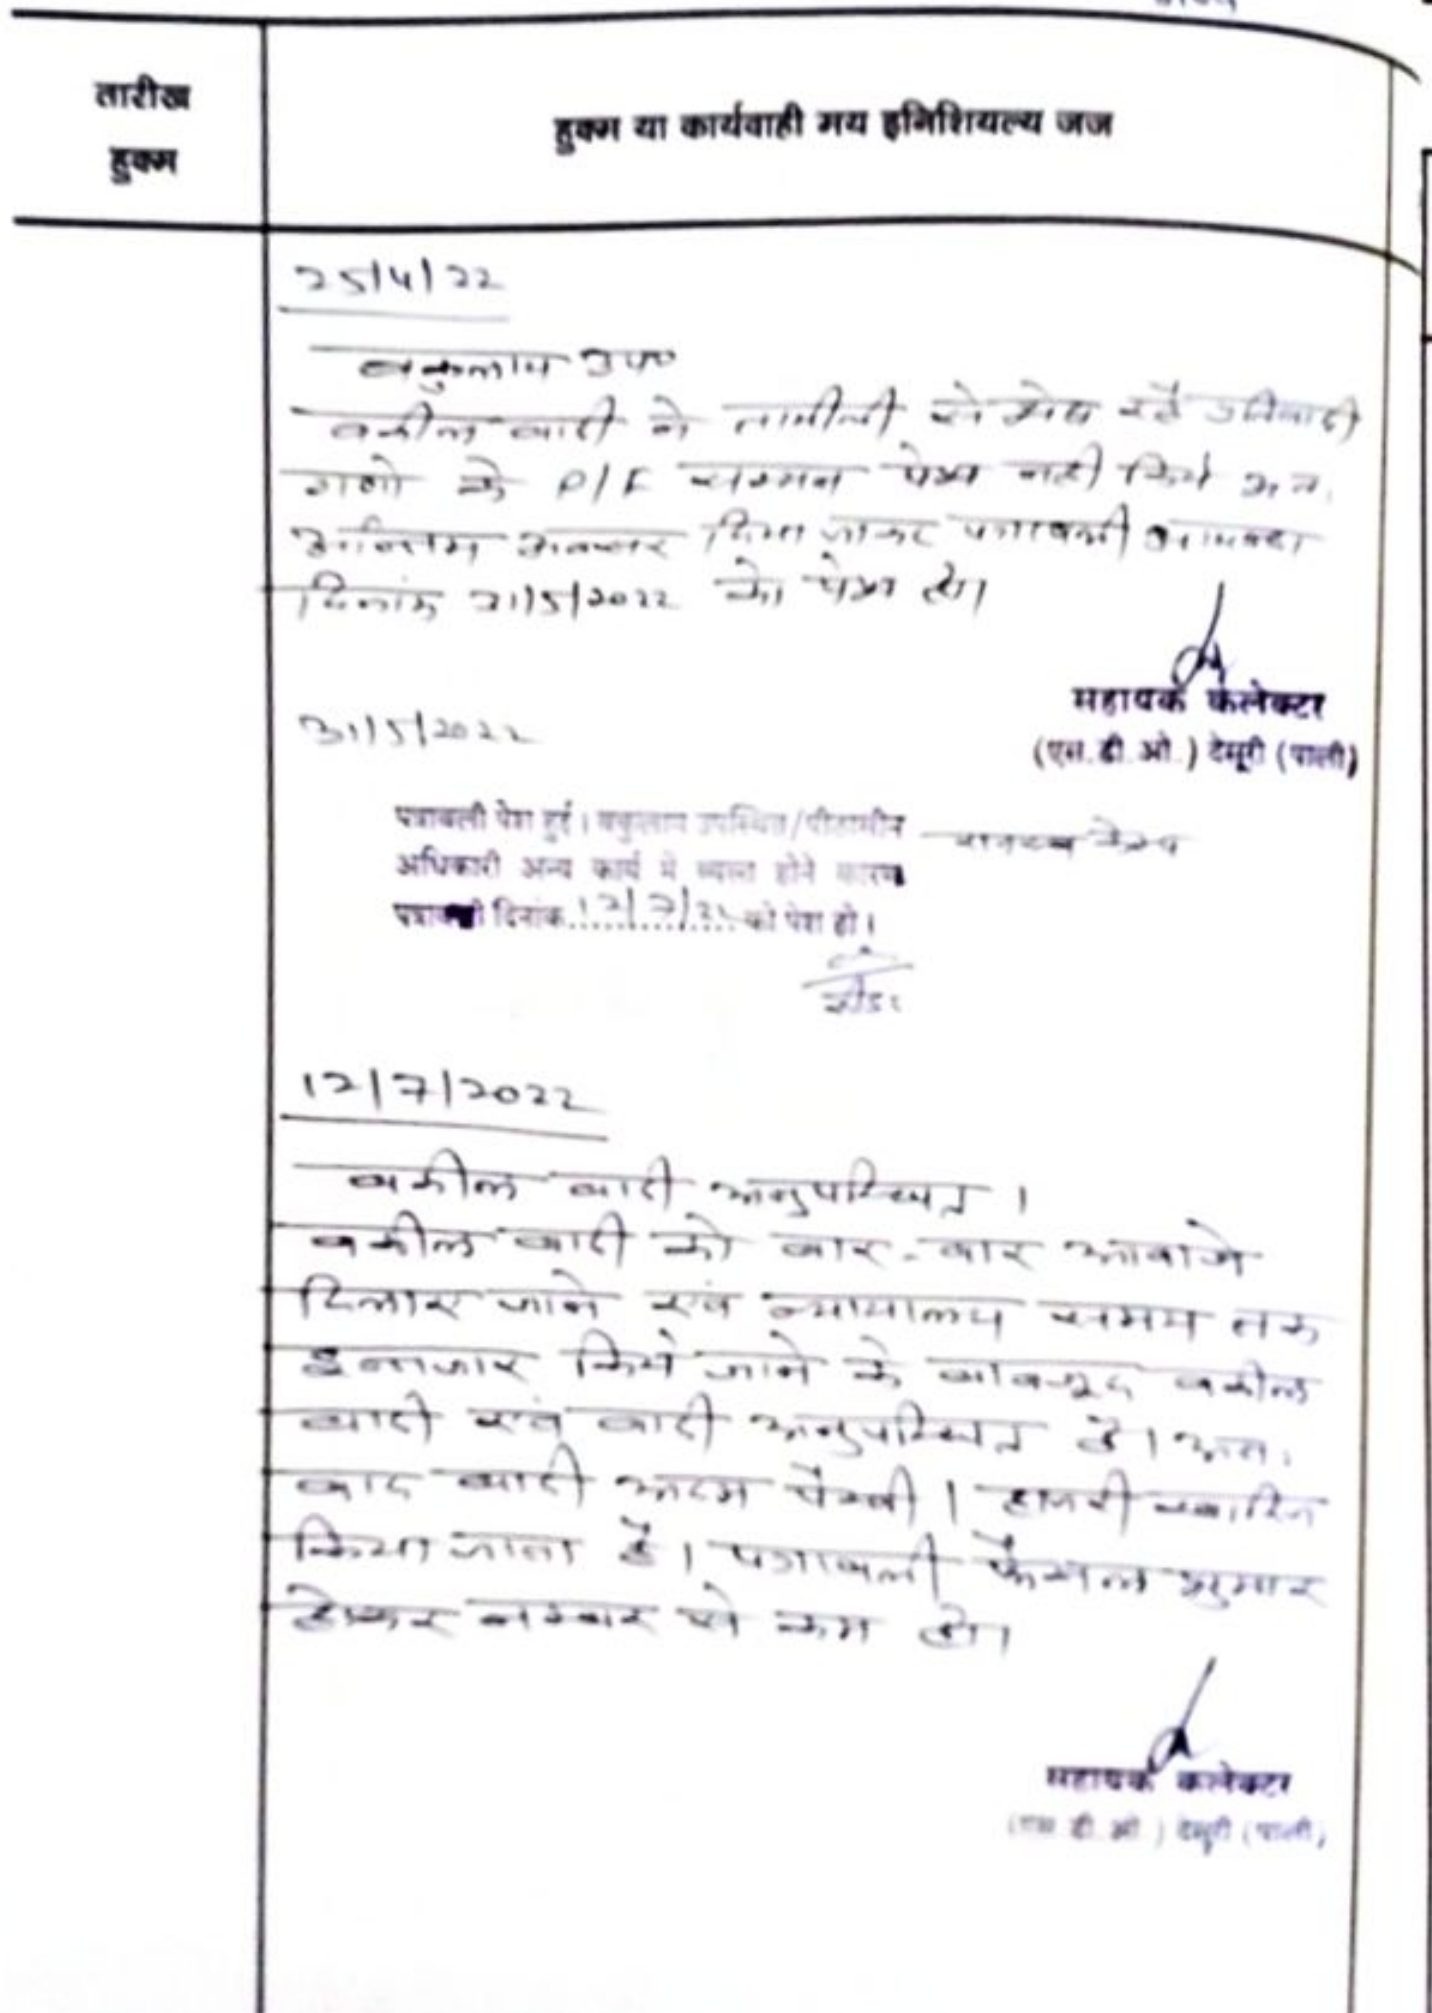 तारीख
हुक्म
हुक्म या कार्यवाही मय इनिशियल्य जज
25/4/22
वकुलाय उप०
वकील वादी ने तामीली से शेष रहे प्रतिवादी
गणो के P/F सम्मन पेश नही किये अतः
अन्तिम अवसर दिया जाकर पत्रावली आयन्दा
दिनांक 31/5/2022 को पेश हो।
सहायक कलेक्टर
(एस.डी.ओ.) देसूरी (पाली)
31/5/2022
पत्रावली पेश हुई। वकुलाय उपस्थित/पीठासीन
अधिकारी अन्य कार्य में व्यस्त होने कारण
पत्रावली दिनांक 12/7/22 को पेश हो।
रीडर
12/7/2022
वकील वादी अनुपस्थित।
वकील वादी को बार-बार आवाजे
दिलाए जाने एवं न्यायालय समय तक
इन्तजार किये जाने के बावजूद वकील
वादी एवं वादी अनुपस्थित है। अतः
वाद वादी अदम पैरवी। हाजरी खारिज
किया जाता है। पत्रावली फैसल शुमार
होकर नम्बर से कम हो।
सहायक कलेक्टर
(एस.डी.ओ.) देसूरी (पाली)